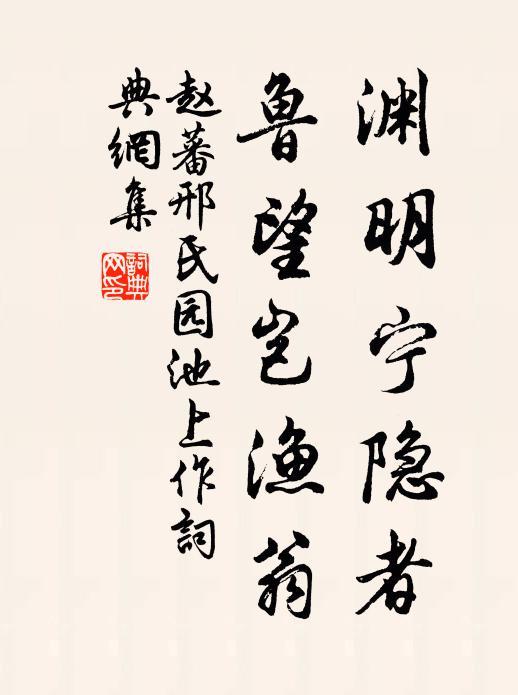 渊明宁隐者
鲁望岂渔翁
赵蕃邢氏园池上作詞
典網集
詞典网印